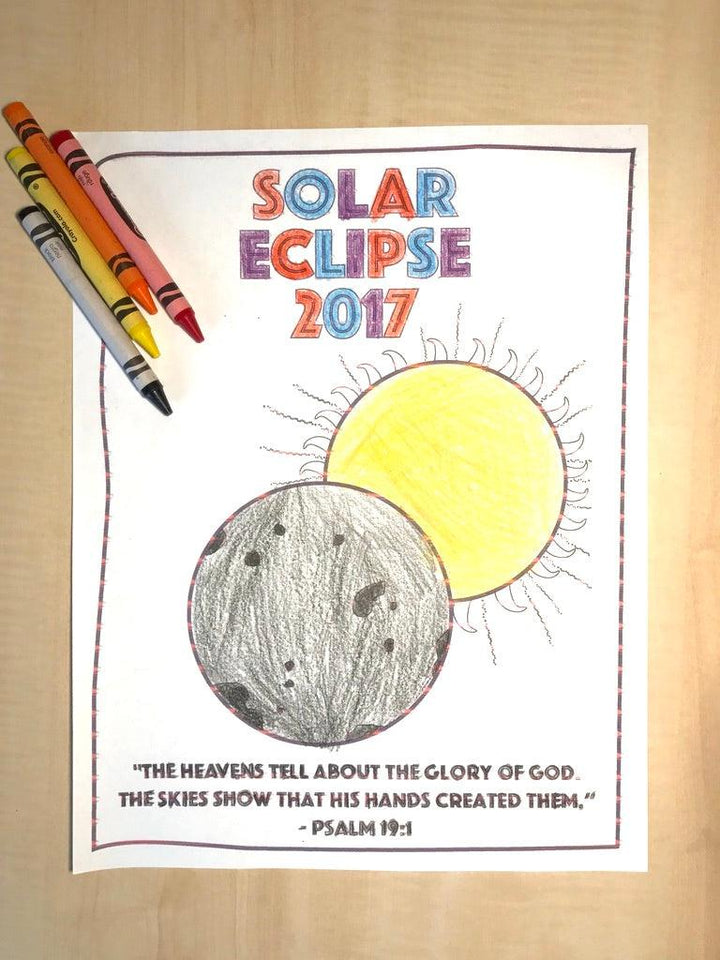 SOLAR
ECLIPSE
2017
Crayola.com
"THE HEAVENS TELL ABOUT THE GLORY OF GOD.
THE SKIES SHOW THAT HIS HANDS CREATED THEM."
- PSALM 19:1